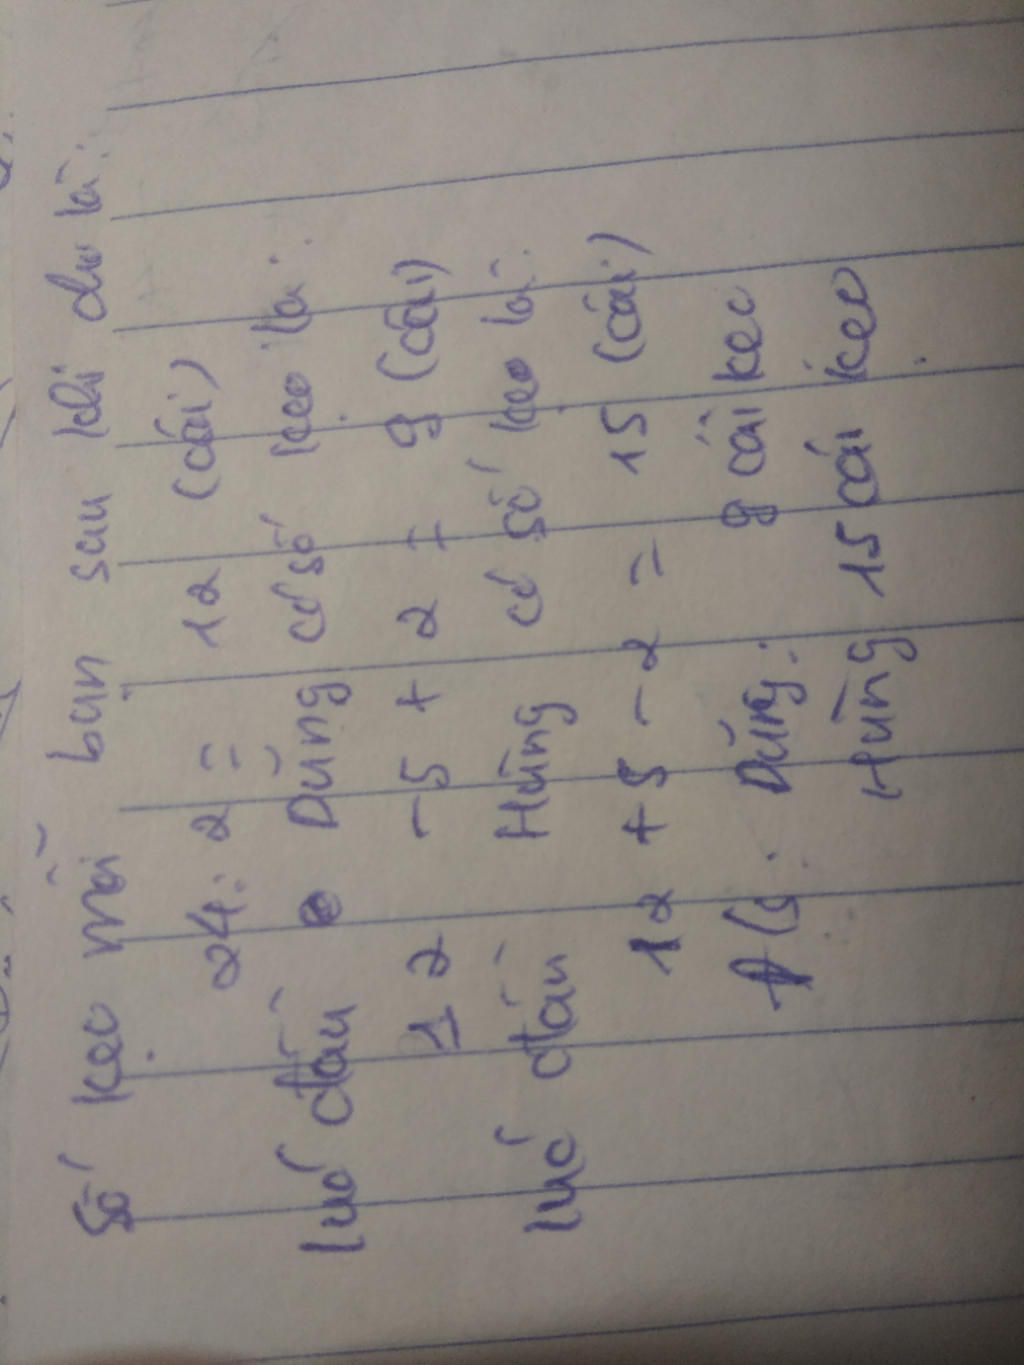 Số kẹo mỗi bạn sau khi cho là:
24 : 2 = 12 (cái)
lúc đầu Dũng có số kẹo là:
12 - 5 + 2 = 9 (cái)
lúc đầu Hùng có số kẹo là:
12 + 5 - 2 = 15 (cái)
Đ/S: Dũng: 9 cái kẹo
Hùng 15 cái kẹo